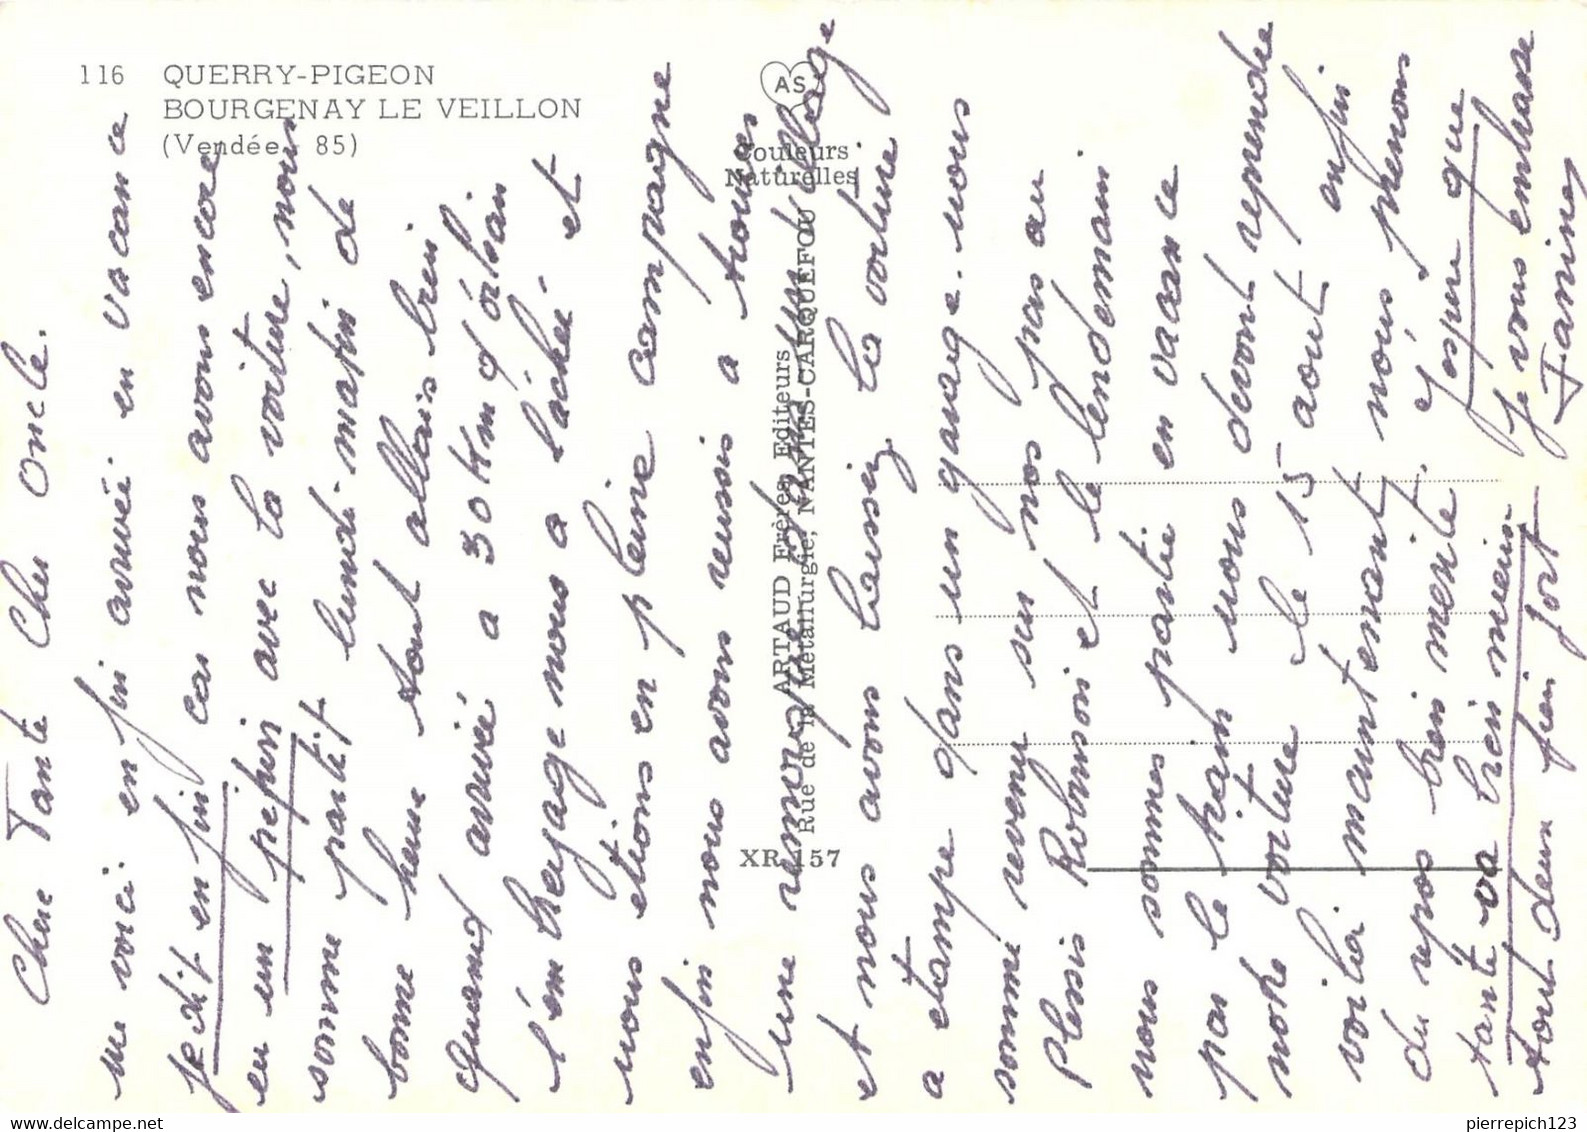 116 QUERRY-PIGEON
BOURGENAY LE VEILLON
(Vendée, 85)
AS
Couleurs
Naturelles
ARTAUD Frères, Editeurs
Rue de la Métallurgie, NANTES-CARQUEFOU
XR 157
Chere Tante Cher oncle.
me voici en fin arrivée en vacance
je dit en fin car nous avons encore
eu un pepin avec la voiture, nous
somme partit lundi matin de
bonne heure tout allais bien
quand arrivée a 30 Km d'orlean
l'embreyage nous a lachée et
nous etions en pleine campagne
enfin nous avons reussis a trouver
une remorque dans un village
et nous avons laissez la voiture
a etampe dans un garage. nous
somme revenu sur nos pas au
Plessis Robinson et le lendemain
nous sommes partie en vacance
par le train nous devont reprendre
notre voiture le 15 aout enfin
voila maintenant nous prenons
du repos bien merite. J'espere que
tante va bien mieux je vous embrasse
tout deux bien fort Janine
pierrepich123